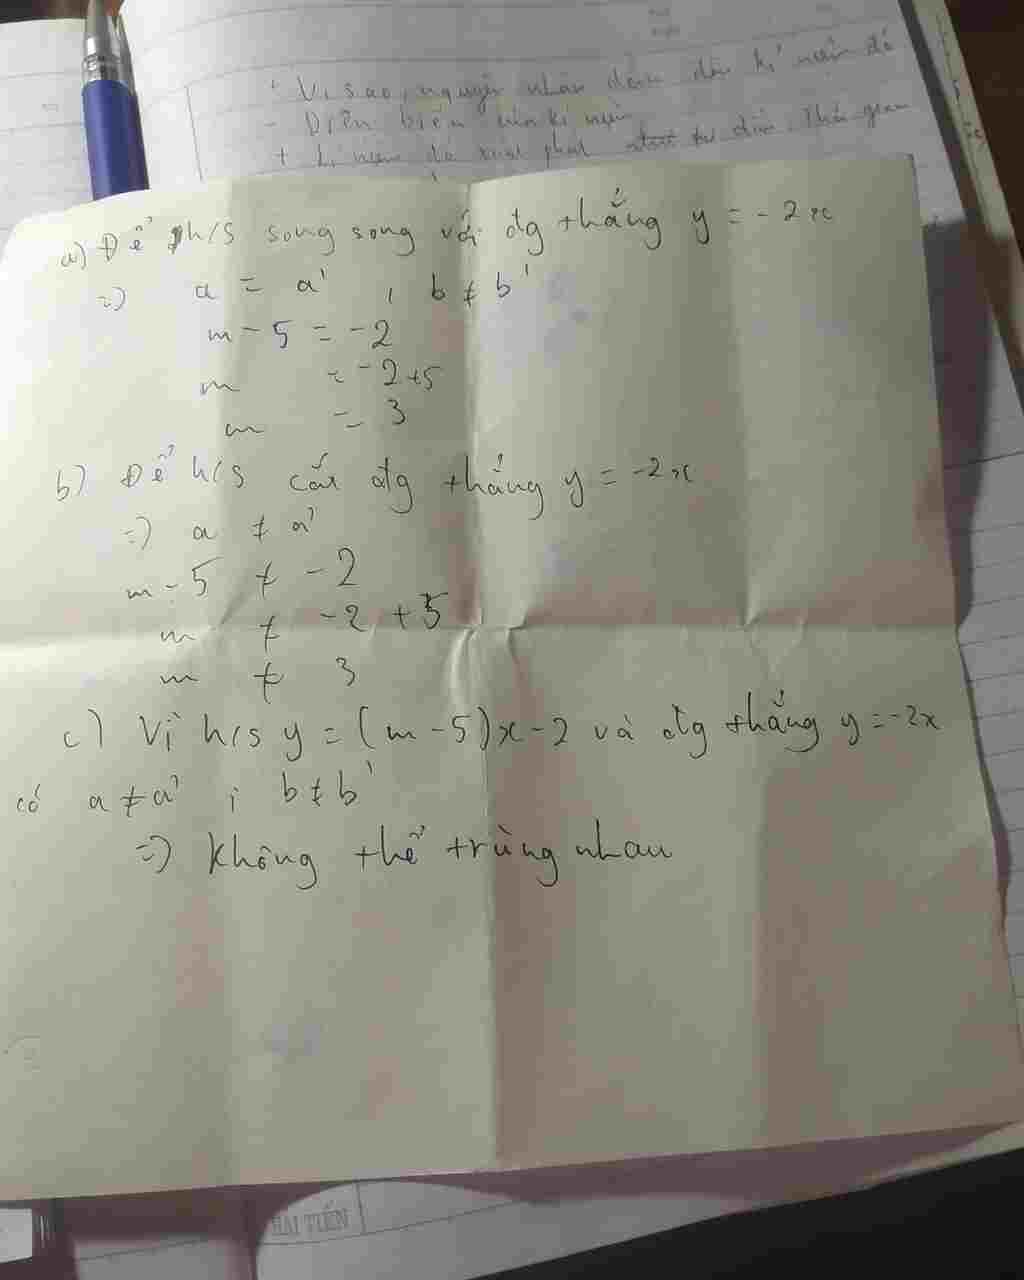 + Vì sao, nguyên nhân dẫn đến kỉ niệm đó
- Diễn biến của kỉ niệm
+ kỉ niệm đó xuất phát từ đâu. Thời gian
a) Để h/s song song với đg thẳng y = -2x
=) a = a' , b ≠ b'
m - 5 = -2
m = -2+5
m = 3
b) Để h/s cắt đg thẳng y = -2x
=) a ≠ a'
m - 5 ≠ -2
m ≠ -2 + 5
m ≠ 3
c) Vì h/s y = (m - 5)x - 2 và đg thẳng y = -2x
có a ≠ a' ; b ≠ b'
=) không thể trùng nhau
HẢI TIẾN